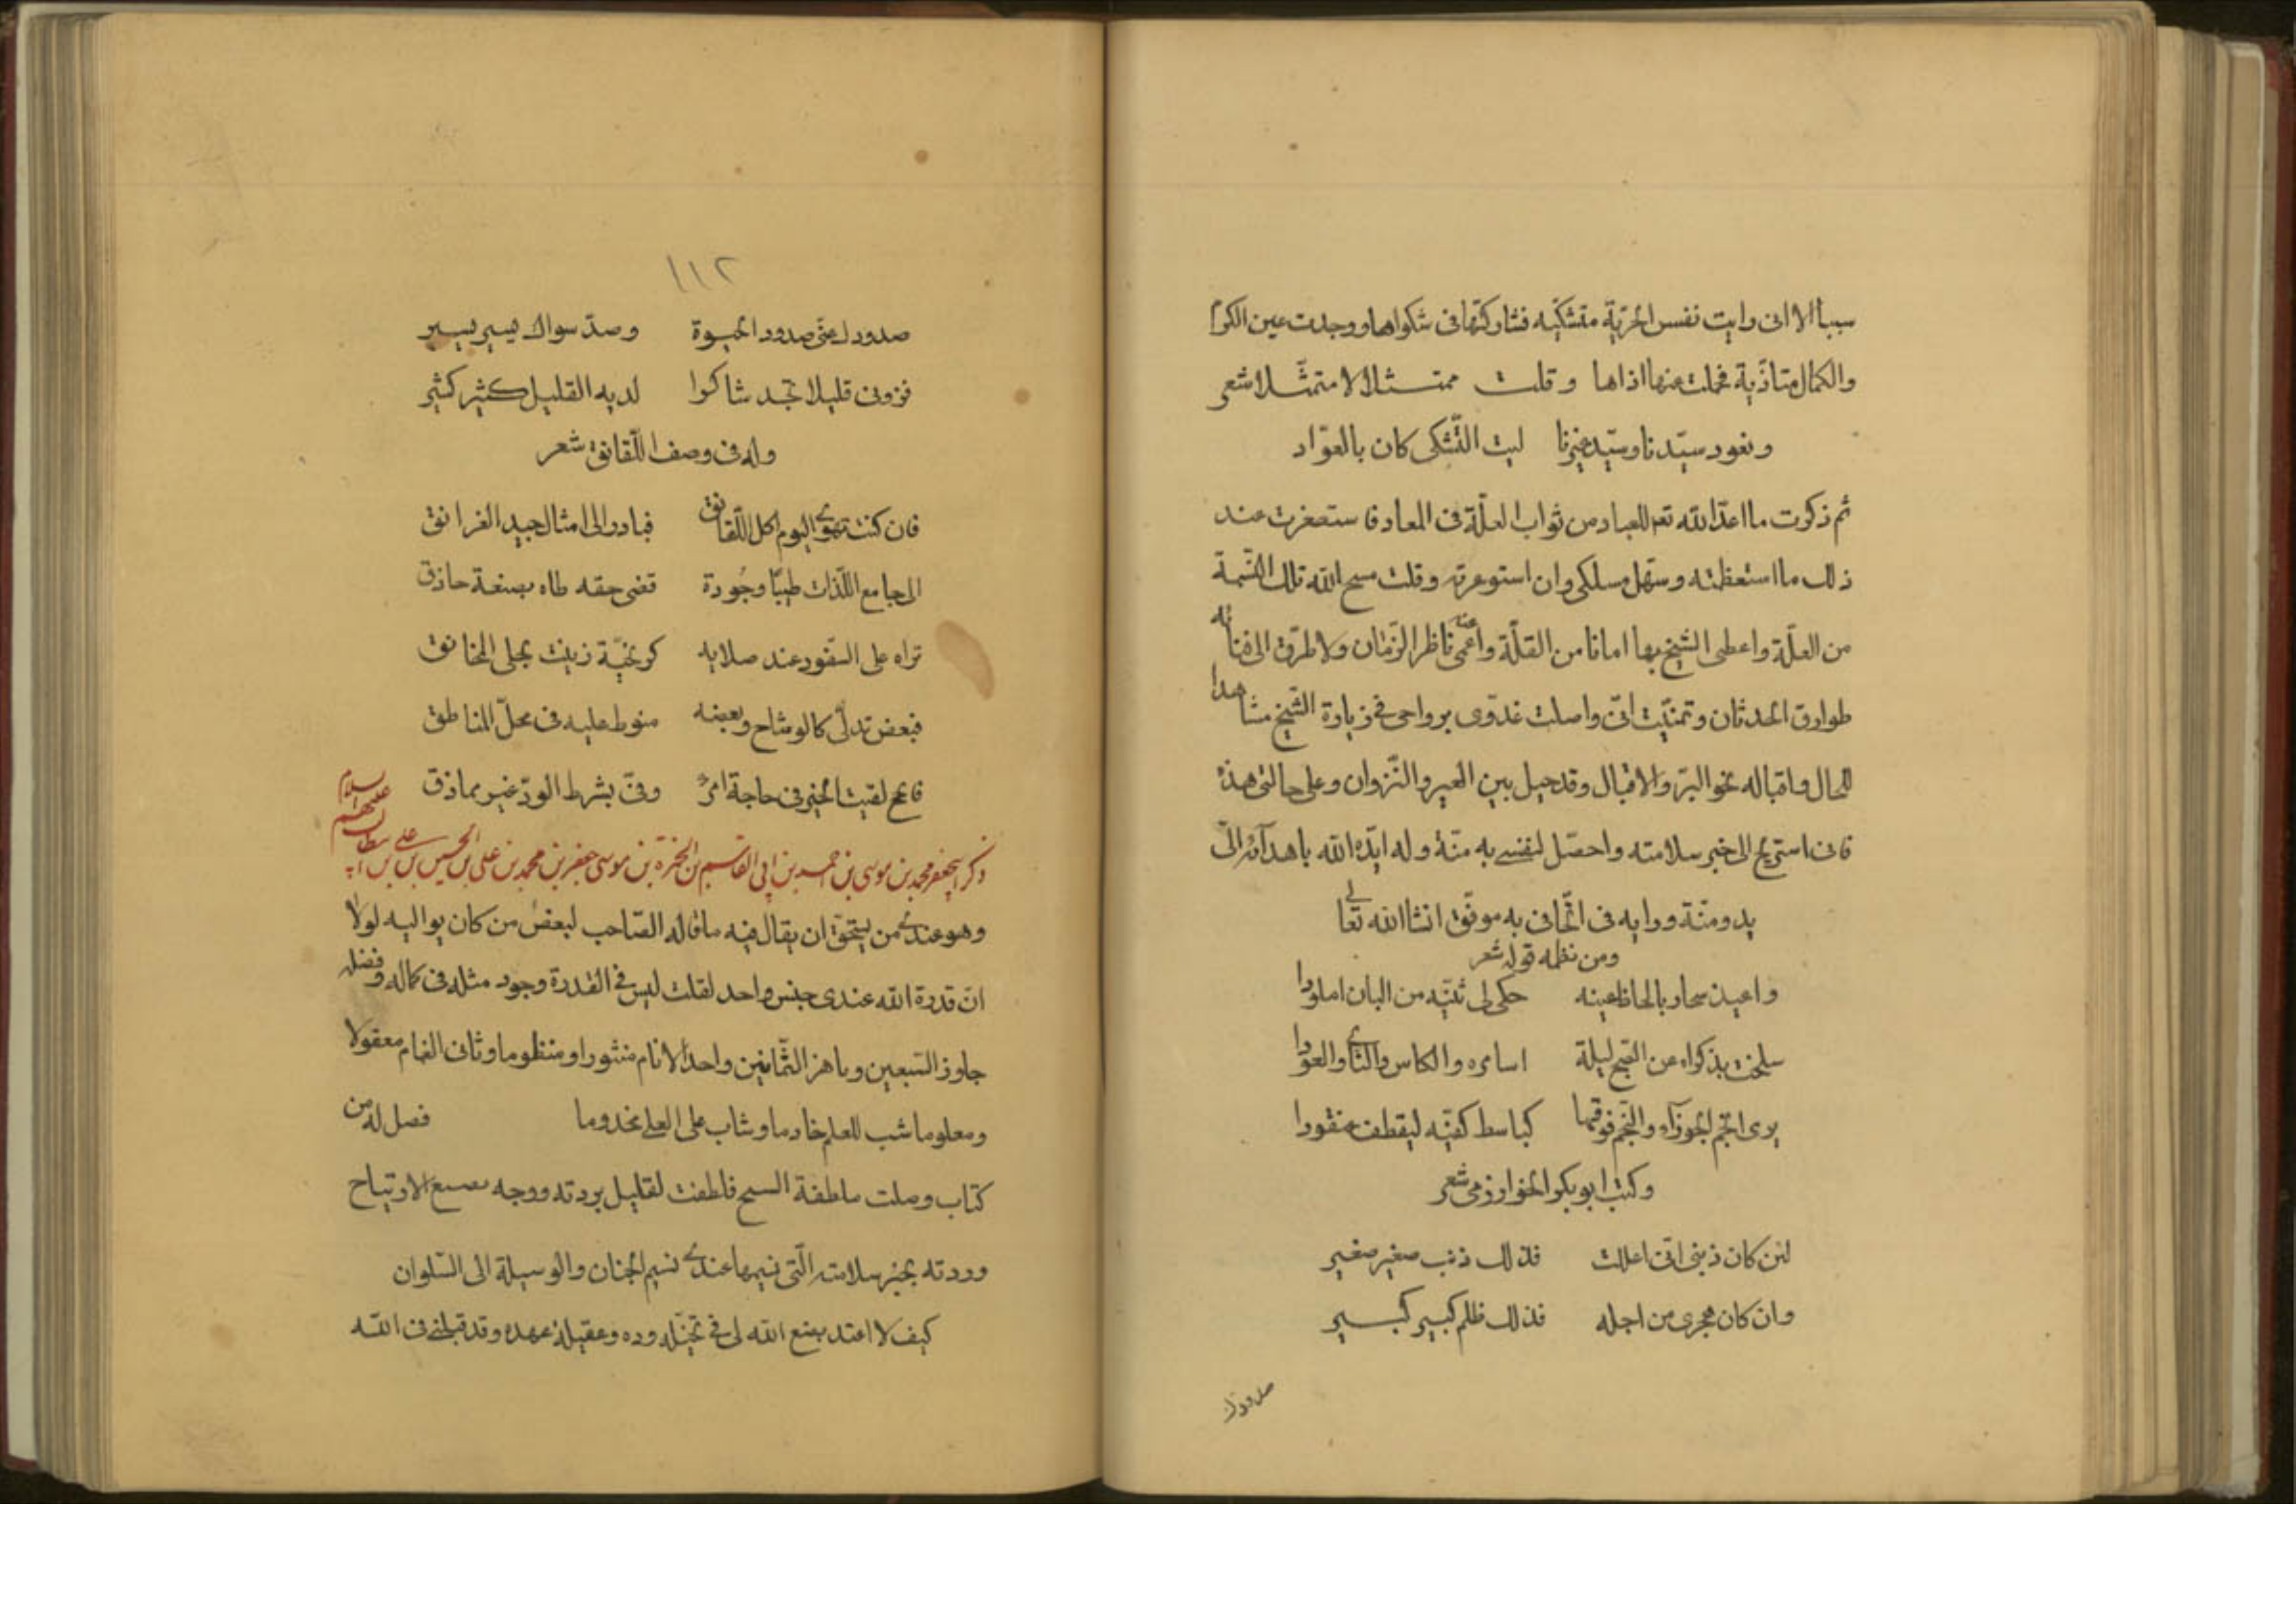 سببا الا انى رايت نفس الحرّية متشكّيه فشاركتها فى شكواها ووجدت عين الكرم
والكمال متاذّية فحملت عنها اذاها وقلت ممتثلا لا متمثّلا شعر
ونعود سيّدنا وسيّد غيرنا ليت التّشكى كان بالعوّاد
ثم ذكرت ما اعدّ الله تعم للعباد من ثواب العلّة فى المعاد فاستصغرت عند
ذلك ما استعظمته وسهّل مسلكى وان استوعرته وقلت مسح الله تلك القسمة
من العلّة واعطى الشيخ بها امانا من القلّة واعمى عنه ناظر الزّمان ولا طرّق الى فنائه
طوارق الحدثان وتمنّيت انّى واصلت غدوّى برواحى فى زيارة الشّيخ مشاهدا
للحال واقباله نحو البرّ والاقبال وقد حيل بين العير والنّزوان وعلى حالتى هذه
فانى استريح الى خبر سلامته واحصّل لنفسى به منّة وله ايّده الله باهدآئه الىّ
يد ومنّة ورايه فى اتّحافى به موفّق انشا الله تعالى
ومن نظمه قوله شعر
واعيد سحار بالحاظ عينه حكى لى تثنّيه من البان املودا
سلخت بذكراه عن الصّبح ليلة اسامره والكاس والناى والعودا
يرى انجم الجوزآء والنّجم فوقها كباسط كفّيه ليقطف عنقودا
وكتب ابو بكر الخوارزمى شعر
لئن كان ذنبى انّى اعللت فذلك ذنب صغير صغير
وان كان هجرى من اجله فذلك ظلم كبير كبير
صدودك
١١٢
صدودك عنّى صدود الحيوة وصدّ سواك يسير يسير
فزرنى قليلا تجد شاكرا لديه القليل كثير كثير
وله فى وصف اللّقانق شعر
فان كنت تهوى اليوم اكل اللّقانق فبادر الى امثال جيد الغرانق
الى جامع اللّذات طيبا وجُودة قضى حقه طاه بصنعة حاذق
تراه على السّفود عند صلايه كزنجيّة زينت بحلى المخانق
فبعض تدلّى كالوشاح وبعضه منوط عليه فى محلّ المناطق
فانجح لقيت الخير فى حاجة امرئ وفىّ بشرط الودّ غير مماذق
ذكر ابى جعفر محمد بن موسى بن احمد بن ابى القاسم بن الحمزة بن موسى جعفر بن محمد بن على بن الحسين بن على بن ابى طالب عليهم السلام
وهو عندى ممن يستحقّ ان يقال فيه ما قاله الصّاحب لبعض من كان يواليه لولا
انّ قدرة الله عندى جنس واحد لقلت ليس فى القدرة وجود مثله فى كماله وفضله
جاوز السّبعين وناهز الثّمانين واحد الانام منثورا ومنظوما وثانى الغمام معقولا
ومعلوما شب للعلم خادما وشاب على العلى مخدوما فصل له من
كتاب وصلت ملطفة السيح فاطفت لقليل بردته ووجه الارتياح
وردته بخبر سلامته الّتى نسيمها عندى نسيم الجنان والوسيلة الى السّلوان
كيف لا اعتد بصنع الله لى فى ودّه وعقيلة عهده وقد قبلنى فى الله